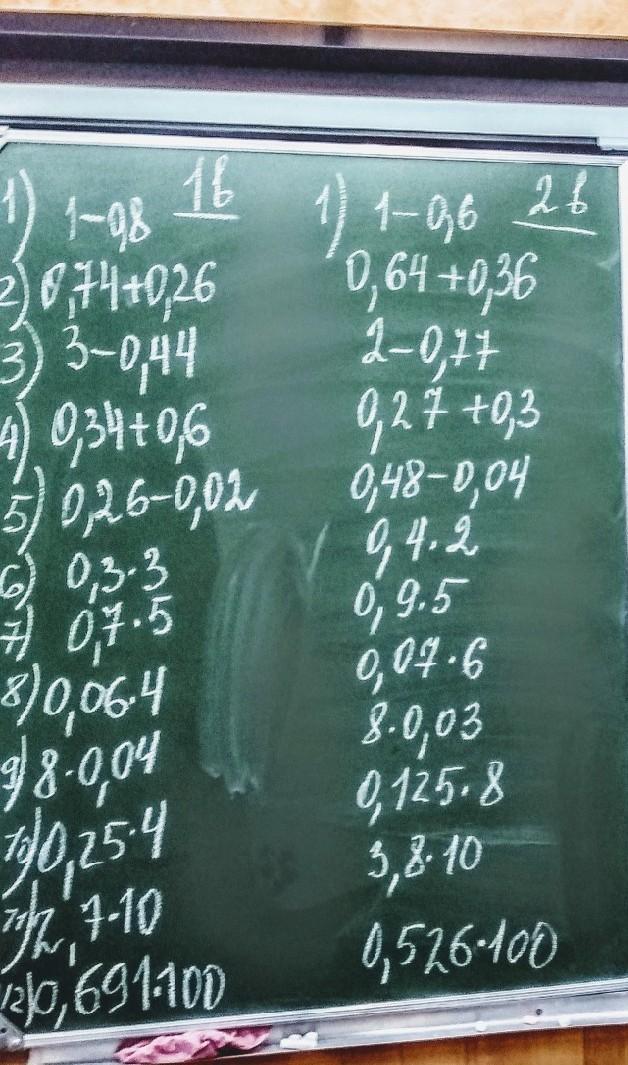 1в
1) 1-0,8
2) 0,74+0,26
3) 3-0,44
4) 0,34+0,6
5) 0,26-0,02
6) 0,3·3
7) 0,7·5
8) 0,06·4
9) 8·0,04
10) 0,25·4
11) 2,7·10
12) 0,691·100
2в
1) 1-0,6
0,64+0,36
2-0,77
0,27+0,3
0,48-0,04
0,4·2
0,9·5
0,07·6
8·0,03
0,125·8
3,8·10
0,526·100